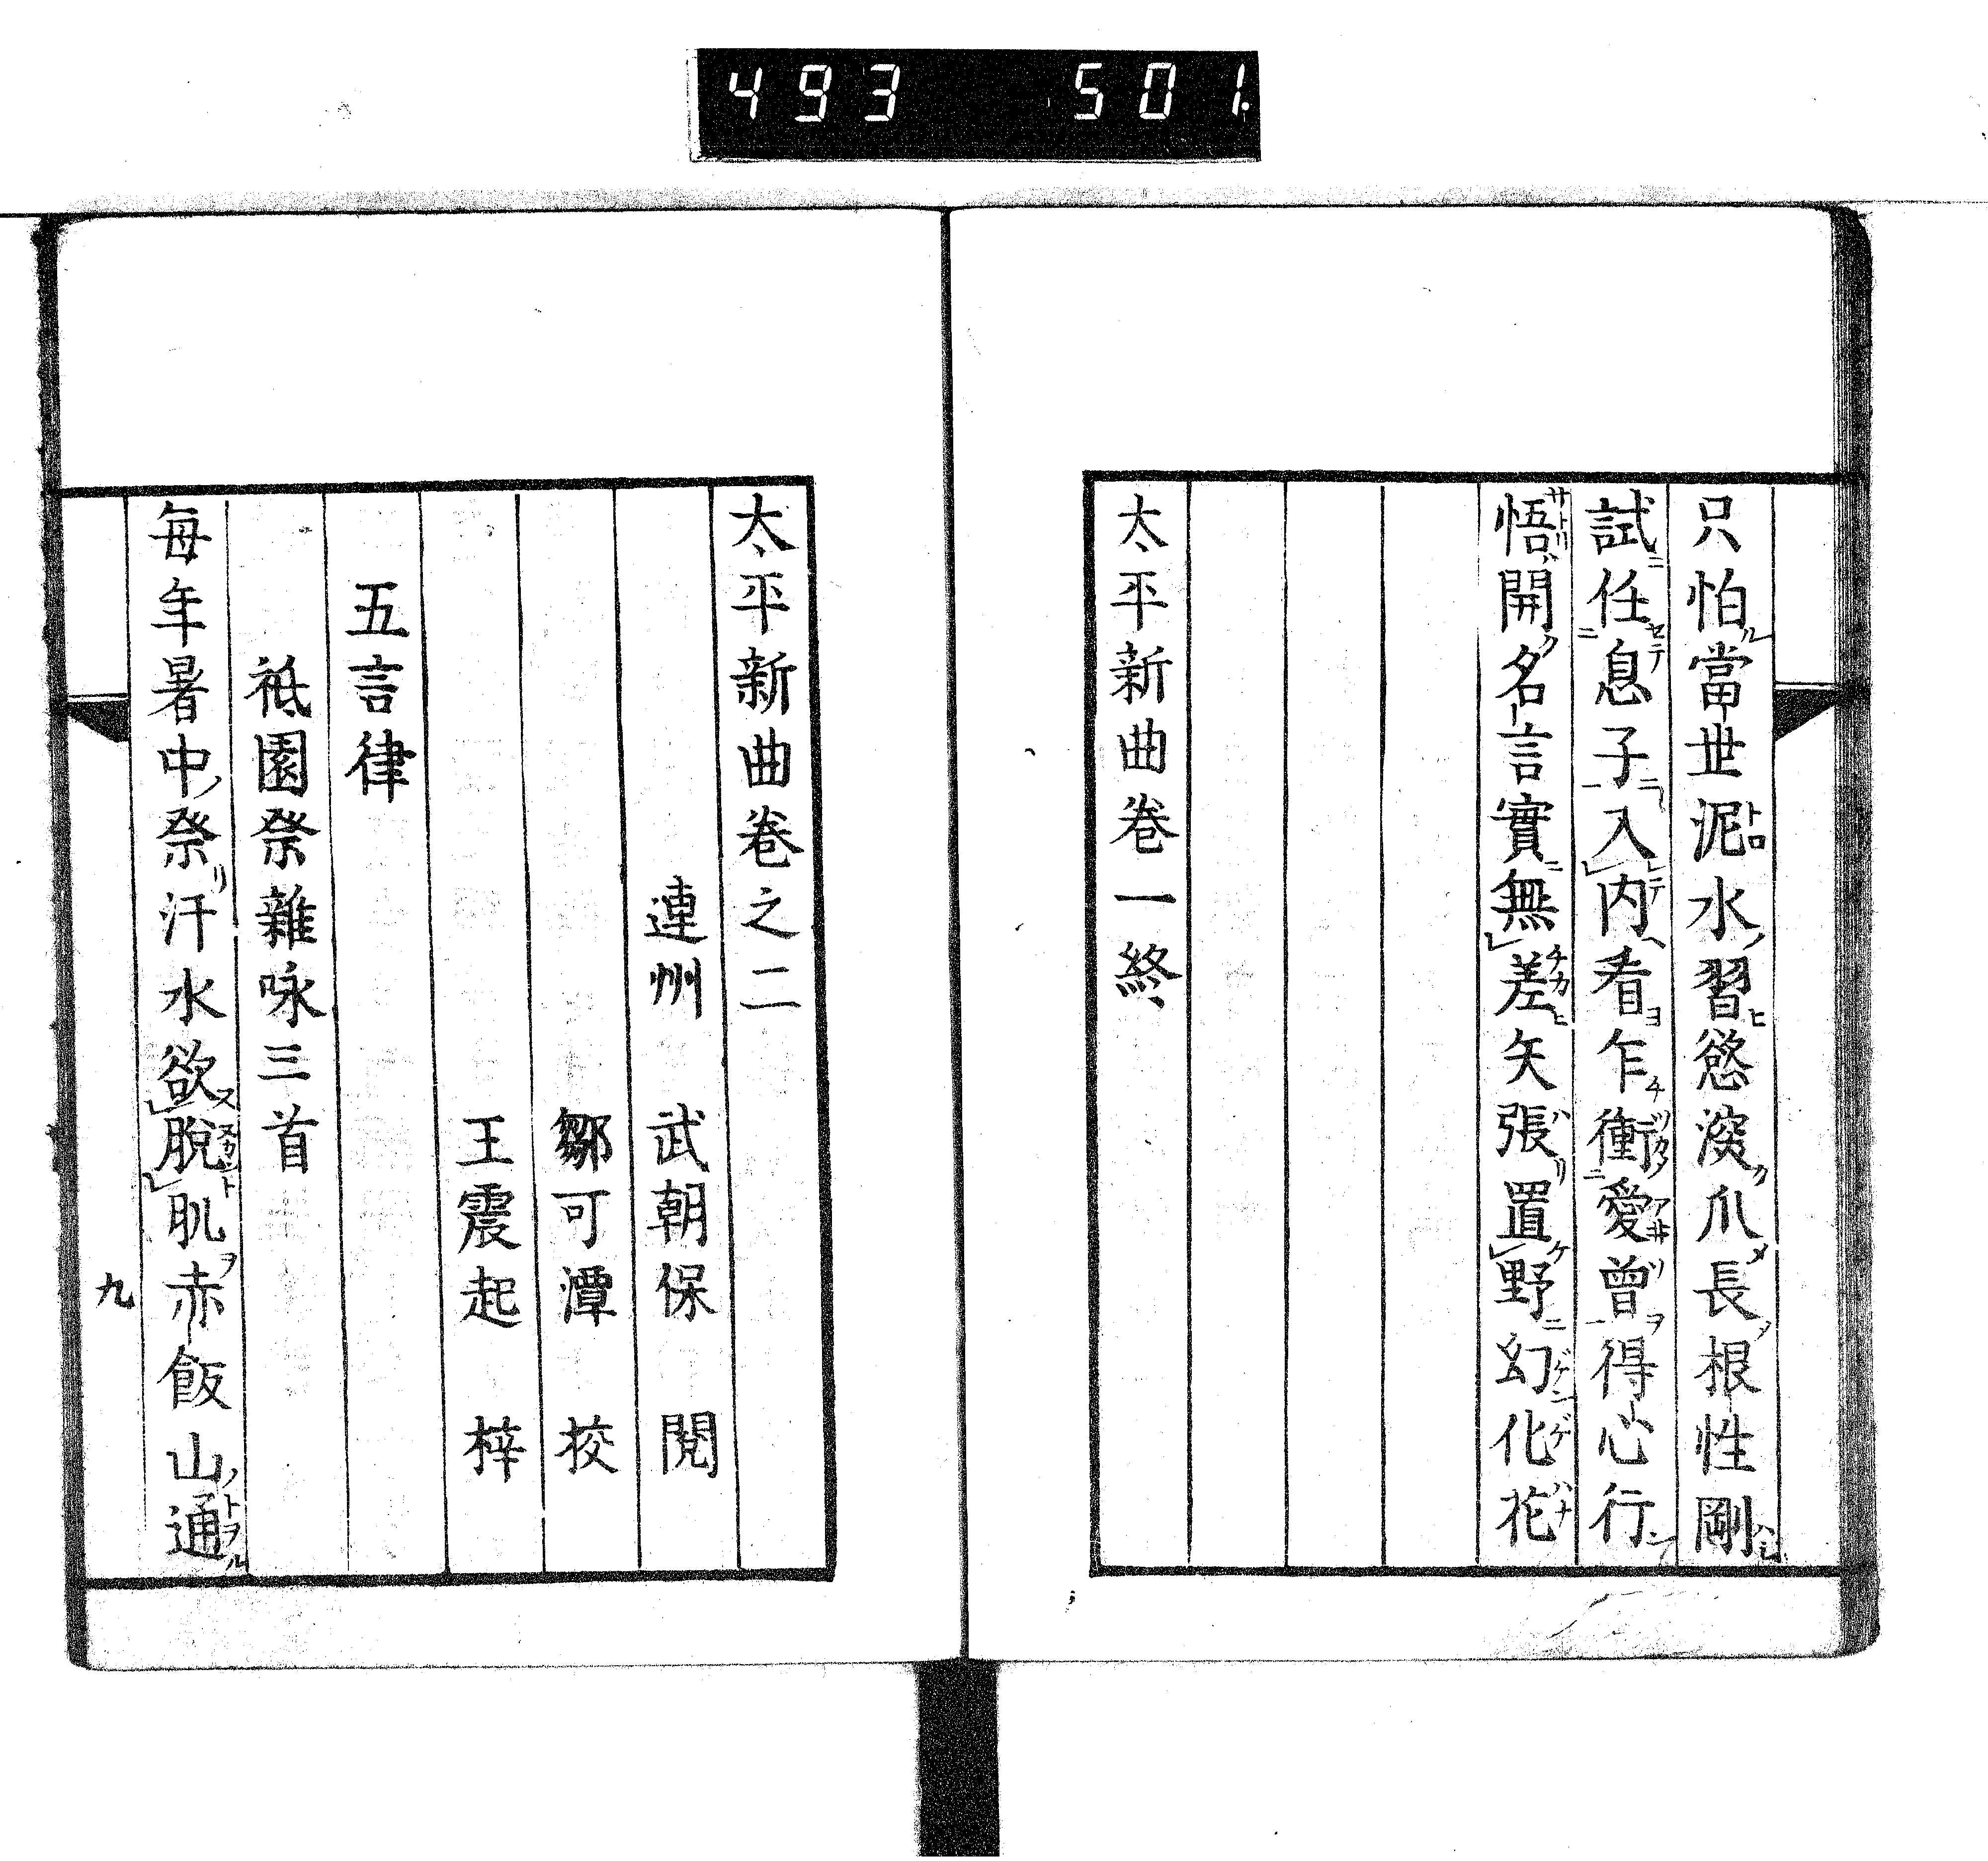 493 501.
只怕當世泥水習慾深爪長根性剛
試任息子入内看乍衝愛曾得心行
悟開名言實無差矢張置野幻化花
太平新曲巻一終
太平新曲巻之二
連州 武朝保 閲
鄒可潭 挍
王震起 梓
五言律
祗園祭雜咏三首
毎年暑中祭汗水欲脫肌赤飯山通
九